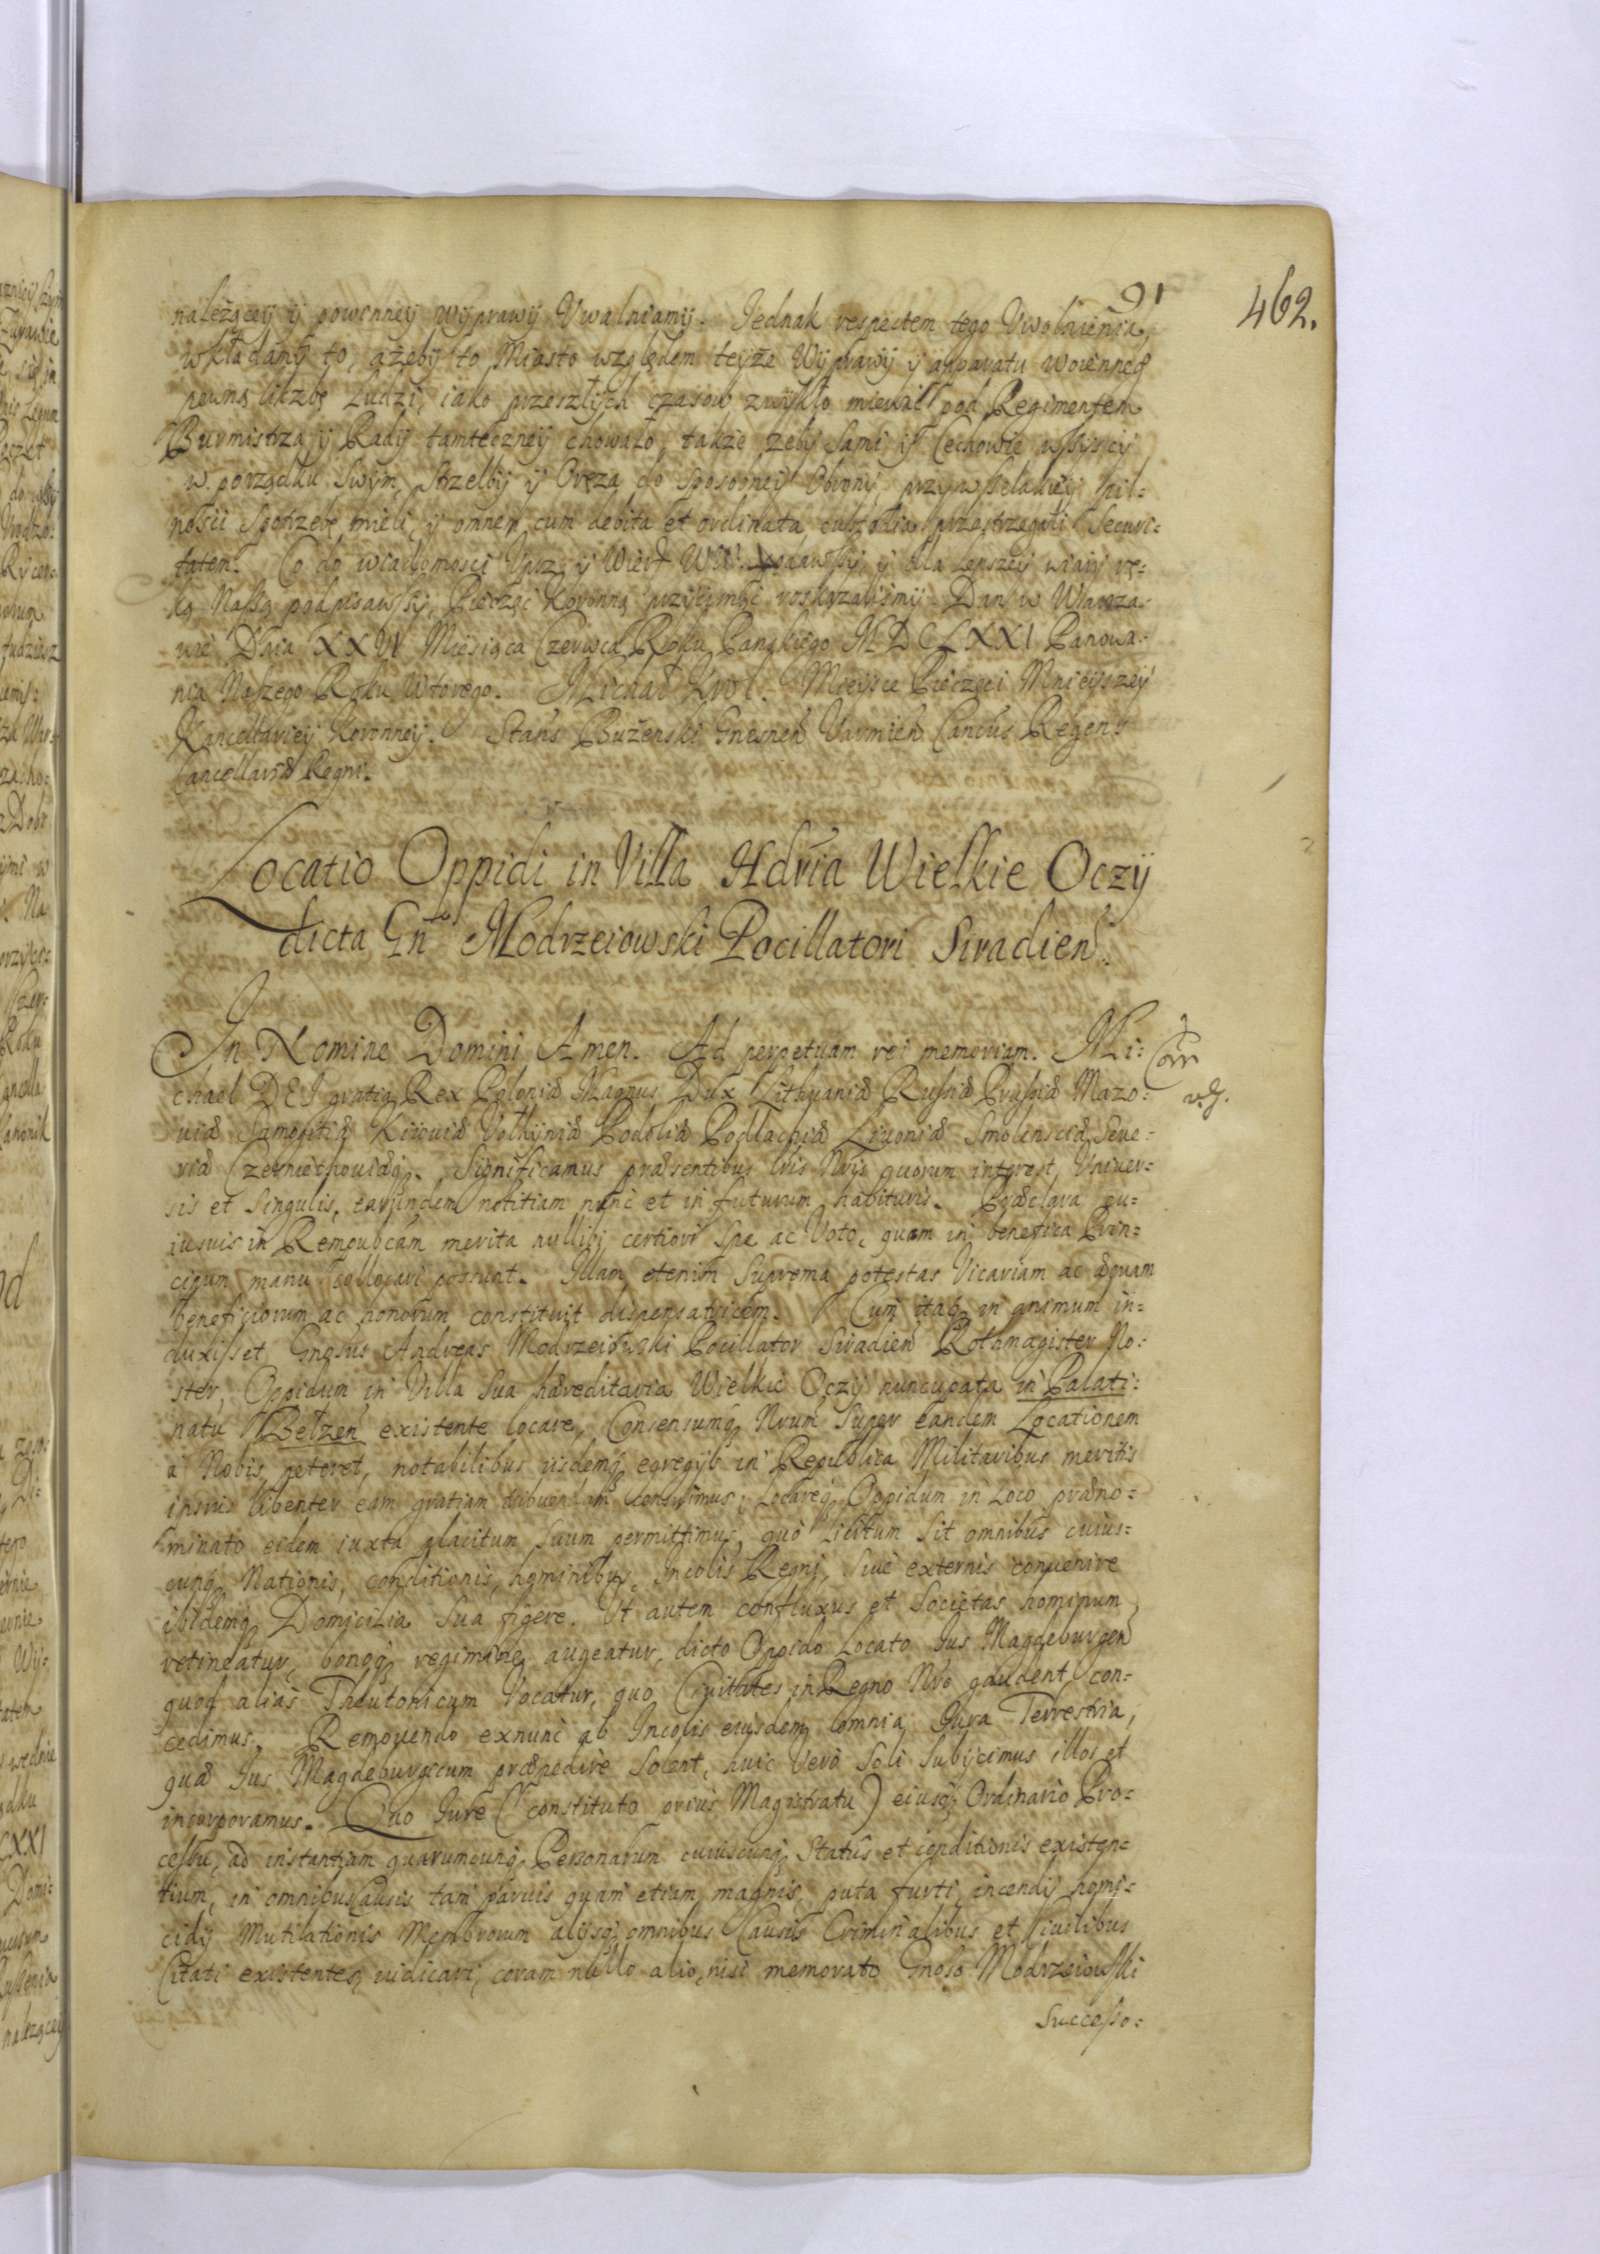 91
462.
należącey y powinney wyprawy Uwalniamy. Jednak respectem tego Uwolnienia,
wkładamy to, ażeby to Miasto względem teyże Wyprawy y apparatu woienneg
pewną liczbę Ludzi, iako przeszłych czasow zwykło miewać pod Regimentem
Burmistrza y Rady tamteczney chowało, także żeby Sami y Cechowie wszyscy
w porządku Swym, Strzelby y Oręża do sposobney Obrony, przy wszelakiey pil-
ności Spotrzebę mieli, y omnem cum debita et ordinata custodia przestrzegali Securi-
tatem. Co do wiadomości Uprz. y Wiert WW. podawszy, y dla lepszey wiary rę-
ką Naszą podpisawszy, Pieczęć Koronną przycisnąć roskazaliśmy. Dan w Warsza-
wie Dnia XXVI Miesiąca Czerwca Roku Panskiego MDCLXXI Panowa-
nia Naszego Roku Wtorego. Michał Krol. Mieysce Pieczęci Mnieyszey
Kancellariey Koronney. Stans Bużenski Gnesnen Varmien Cancus Regens
Cancellariæ Regni.
Locatio Oppidi in Villa Hdria Wielkie Oczy
dicta Gn Modrzeiowski Pocillatori Siradien.
In Nomine Domini Amen. Ad perpetuam rei memoriam. Mi-
Corr
chael DEI gratia Rex Poloniæ Magnus Dux Lithuaniæ Russiæ Prussiæ Mazo-
uiæ Samogitiæ Kiiouiæ Volhyniæ Podoliæ Podlachiæ Liuoniæ Smolensciæ Seue-
riæ Czerniechouiæq. Significamus præsentibus Lris Nris quorum interest, Vniuer-
sis et Singulis, earundem notitiam nunc et in futurum habituris. Præclara cu-
iusuis in Rempubcam merita nullibi certiori Spe ac Voto, quam in benefica Prin-
cipum manu collocari possunt. Illam etenim Suprema potestas Vicariam ac æquam
beneficiorum ac honorum constituit dispensatricem. Cum itaq in animum in-
duxisset Gnosus Andreas Modrzeiowski Pocillator Siradien Rothmagister No-
ster, Oppidum in Villa Sua hæreditaria Wielkie Oczy nuncupata in Palati-
natu Belzen existente locare, Consensumq Nrum Super eandem Locationem
a Nobis peteret, notabilibus iisdemq egregijs in Republica Militaribus meritis
ipsius libenter eam gratiam tribuendam censuimus; Locareq Oppidum in Loco præno-
minato eidem iuxta placitum Suum permittimus, quò Licitum Sit omnibus cuius-
cunq Nationis, conditionis, hominibus, Incolis Regni, Siue externis conuenire
ibidemq Domicilia Sua figere. Vt autem confluxus et Societas hominum
retineatur, bonoq regimine augeatur, dicto Oppido Locato Jus Magdeburgen
quod alias Theutonicum Vocatur, quo Ciuitates in Regno Nro gaudent, con-
cedimus. Remouendo exnunc ab Incolis eiusdem omnia Jura Terrestria,
quæ Jus Magdeburgicum præpedire Solent, huic Verò Soli Subijcimus illos et
incorporamus. Quo Jure (constituto prius Magistratu) eiusq Ordinario Pro-
cessu, ad instantiam quarumcunq Personarum cuiuscunq Status et conditionis existen-
tium, in omnibus Causis tam paruis quam etiam magnis, puta furti, incendij homi-
cidij Mutilationis Membrorum alijsq omnibus Causis Criminalibus et Ciuilibus
Citati existentes, iudicari, coram nullo alio, nisi memorato Gnoso Modrzeiowski
Successo-